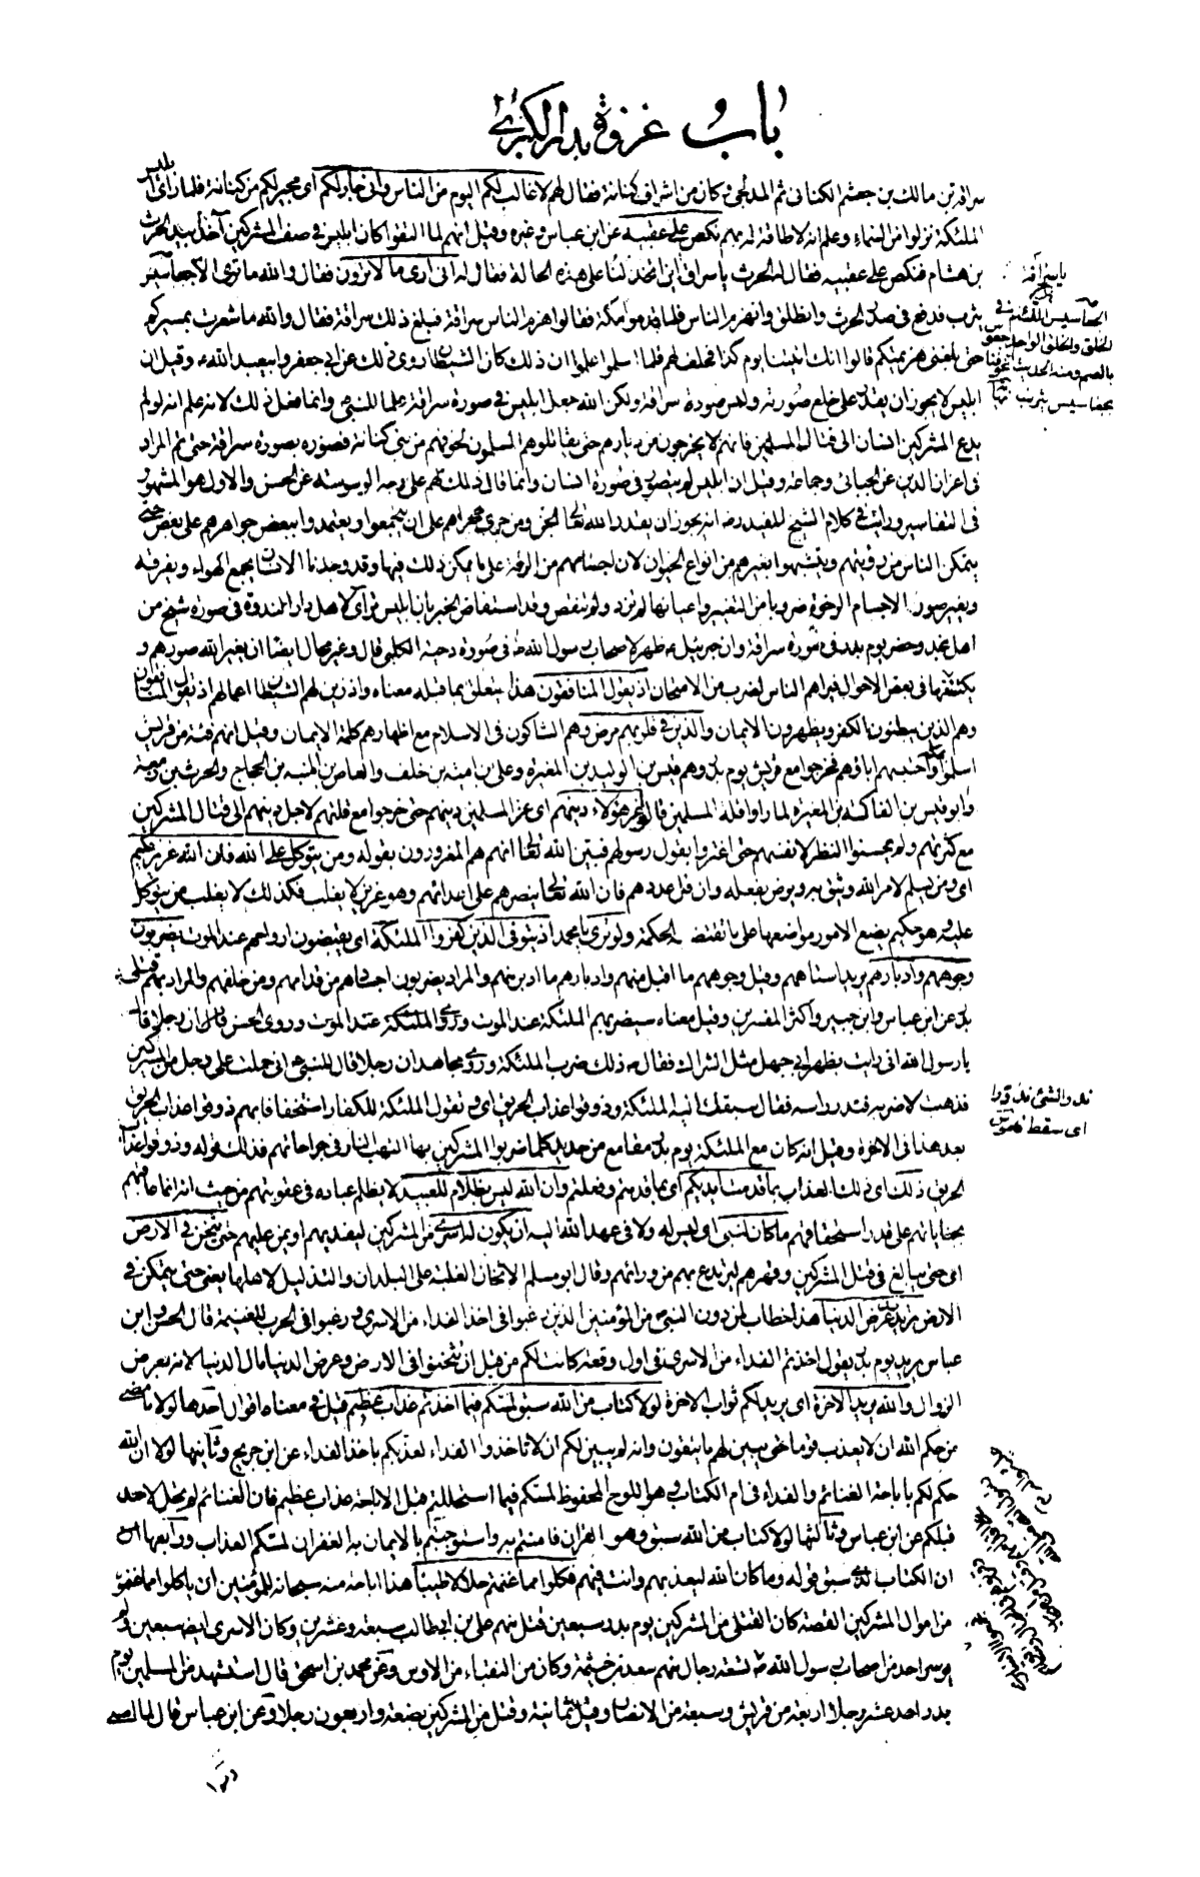 باب غزوة بدر الكبرى
سراقة بن مالك بن جعشم الكنانى ثم المدلجى وكان من اشراف كنانة فقال لهم لا غالب لكم اليوم من الناس وانى جار لكم اى مجير لكم من كنانة فلما رأى ابليس
الملئكة نزلوا من السماء وعلم انه لا طاقة له بهم نكص على عقبيه عن ابن عباس وغيره وقيل انهم لما التقوا كان ابليس فى صف المشركين آخذا بيد الحرث
بن هشام فنكص على عقبيه فقال له الحرث يا سراق اين اتخذلنا على هذه الحالة فقال له انى ارى ما لا ترون فقال والله ما ترى الا جعاسيس
يثرب فدفع فى صدر الحرث وانطلق وانهزم الناس فلما قدموا مكة فقالوا هزم الناس سراقة فبلغ ذلك سراقة فقال والله ما شعرت بمسيركم
حتى بلغنى هزيمتكم قالوا انك اتيتنا يوم كذا فحلف لهم فلما اسلموا علموا ان ذلك كان الشيطان روى ذلك عن ابى جعفر وابيعبد الله ع وقيل ان
ابليس لا يجوز ان يقدر على خلع صورته ولبس صورة سراقة ولكن الله جعل ابليس فى صورة سراقة علما للنبى ص وانما فعل ذلك لانه علم انه لو لم
يدع المشركين انسان الى قتال المسلمين فانهم لا يخرجون من ديارهم حتى يقاتلوهم المسلمون لخوفهم من بنى كنانة فصوره بصورة سراقة حتى تم المراد
فى اعزاز الدين عن الجبائى وجماعة وقيل ان ابليس لم يتصور فى صورة انسان وانما قال ذلك لهم على وجه الوسوسة عن الحسن والاول هو المشهور
فى التفاسير ورايت فى كلام الشيخ المفيد رضه انه يجوز ان يقدر الله تعالى الجن ومن جرى مجراهم على ان يتجمعوا ويعتمدوا ببعض جواهرهم على بعض حتى
يتمكن الناس من رؤيتهم ويتشبهوا بغيرهم من انواع الحيوان لان اجسامهم من الرقة على ما يمكن ذلك فيها وقد وجدنا الانسان يجمع الهواء ويفرقه
ويغير صور الاجسام الرخوة ضروبا من التغيير واعيانها لم تزد ولم تنقص وقد استفاض الخبر بان ابليس تراآى لاهل دار الندوة فى صورة شيخ من
اهل نجد وحضر يوم بدر فى صورة سراقة وان جبرئيل ع ظهر لاصحاب رسول الله ص فى صورة دحية الكلبى قال وغير محال ايضا ان يغير الله صورهم و
يكثفها فى بعض الاحوال فيراهم الناس لضرب من الامتحان اذ يقول المنافقون هذا يتعلق بما قبله معناه واذ زين لهم الشيطان اعمالهم اذ يقول المنافقون
وهم الذين يبطنون الكفر ويظهرون الايمان والذين فى قلوبهم مرض وهم الشاكون فى الاسلام مع اظهارهم كلمة الايمان وقيل انهم فئة من قريش
اسلموا واحتبسهم آباؤهم فخرجوا مع قريش يوم بدر وهم قيس بن الوليد بن المغيرة وعلى بن امية بن خلف والعاص بن المنبه بن الحجاج والحرث بن زمعة
وابو قيس بن الفاكه بن المغيرة لما راوا قلة المسلمين قالوا غر هؤلاء دينهم اى غر المسلمين دينهم حتى خرجوا مع قلتهم لاجل دينهم الى قتال المشركين
مع كثرتهم ولم يحسنوا النظر لانفسهم حتى اغتروا بقول رسولهم فبين الله تعالى انهم هم المغرورون بقوله ومن يتوكل على الله فان الله عزيز حكيم
اى ومن يسلم لامر الله ويثق به ويرض بفعله وان قل عددهم فان الله تعالى ينصرهم على اعدائهم وهو عزيز لا يغلب فكذلك لا يغلب من يتوكل
عليه وهو حكيم يضع الامور مواضعها على ما تقتضيه الحكمة ولو ترى يا محمد اذ يتوفى الذين كفروا الملئكة اى يقبضون ارواحهم عند الموت يضربون
وجوههم وادبارهم يريد استاههم وقيل وجوههم ما اقبل منهم وادبارهم ما ادبر منهم والمراد يضربون اجسادهم من قدامهم ومن خلفهم والمراد بهم قتلى
بدر عن ابن عباس وابن جبير واكثر المفسرين وقيل معناه سيضربهم الملئكة عند الموت وروى الحسن قال ان رجلا قال
يا رسول الله انى رايت بظهر ابى جهل مثل الشراك فقال ص ذلك ضرب الملئكة وروى مجاهد ان رجلا قال للنبى ص انى حملت على رجل من المشركين
فذهبت لاضربه فندر راسه فقال سبقك اليه الملئكة وذوقوا عذاب الحريق اى وتقول الملئكة للكفار استخفافا بهم ذوقوا عذاب الحريق
بعد هذا فى الاخرة وقيل انه كان مع الملئكة يوم بدر مقامع من حديد كلما ضربوا المشركين بها التهب النار فى جراحاتهم فذلك قوله وذوقوا عذاب
الحريق ذلك اى ذلك العذاب بما قدمت ايديكم اى بما قدمتم وفعلتم وان الله ليس بظلام للعبيد لا يظلم عباده فى عقوبتهم من حيث انه انما عاقبهم
بجناياتهم على قدر استحقاقهم ما كان لنبى اى ليس له ولا فى عهد الله اليه ان يكون له اسرى من المشركين ليفديهم او يمن عليهم حتى يثخن فى الارض
اى حتى يبالغ فى قتل المشركين وقهرهم ليرتدع بهم من ورائهم وقال ابو مسلم الاثخان الغلبة على البلدان والتذليل لاهلها يعنى حتى يتمكن فى
الارض تريدون عرض الدنيا هذا خطاب لمن دون النبى ص من المؤمنين الذين رغبوا فى اخذ الفداء من الاسرى ورغبوا فى الحرب للغنيمة قال الحسن وابن
عباس يريد يوم بدر يقول اخذتم الفداء من الاسرى فى اول وقعة كانت لكم من قبل ان تثخنوا فى الارض وعرض الدنيا مال الدنيا لانه بعرض
الزوال والله يريد الآخرة اى يريد لكم ثواب الاخرة لولا كتاب من الله سبق لمسكم فيما اخذتم عذاب عظيم قيل فى معناه اقوال احدها لولا ما مضى
من حكم الله ان لا يعذب قوما حتى يبين لهم ما يتقون وانه لم يبين لكم ان لا تاخذوا الفداء لعذبكم باخذ الفداء عن ابن جريج وثانيها لولا ان الله
حكم لكم باباحة الغنائم والفداء فى ام الكتاب وهو اللوح المحفوظ لمسكم فيما استحللتم قبل الاباحة عذاب عظيم فان الغنائم لم يحل لاحد
قبلكم عن ابن عباس وثالثها لولا كتاب من الله سبق وهو القران فامنتم به واستوجبتم بالايمان به الغفران لمسكم العذاب ورابعها
ان الكتاب الذى سبق قوله وما كان الله ليعذبهم وانت فيهم فكلوا مما غنمتم حلالا طيبا هذا اباحة منه سبحانه للمؤمنين ان ياكلوا مما غنموه
من اموال المشركين القصة كان القتلى من المشركين يوم بدر سبعين قتل منهم على بن ابى طالب سبعة وعشرين وكان الاسرى ايضا سبعين ولم
يوسر احد من اصحاب رسول الله ص تسعة رجال منهم سعد بن خيثمة وكان من النقباء من الاوس وعن محمد بن اسحق قال استشهد من المسلمين يوم
بدر احد عشر رجلا اربعة من قريش وسبعة من الانصار وقيل ثمانية وقتل من المشركين بضعة واربعون رجلا وعن ابن عباس قال لما
الجعاسيس اللئام فى
الخلق والخلق الواحد جعسوس
بالضم ومنه الحديث
بجعاسيس يثرب
ندر الشئ ندورا
اى سقط قاموس